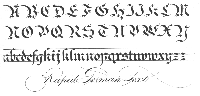 ABCDEFGHIJKLM
NOPQRSTUVWXYZ
abcdefghijklmnopqrstuvwxyzz
Rapid German Text